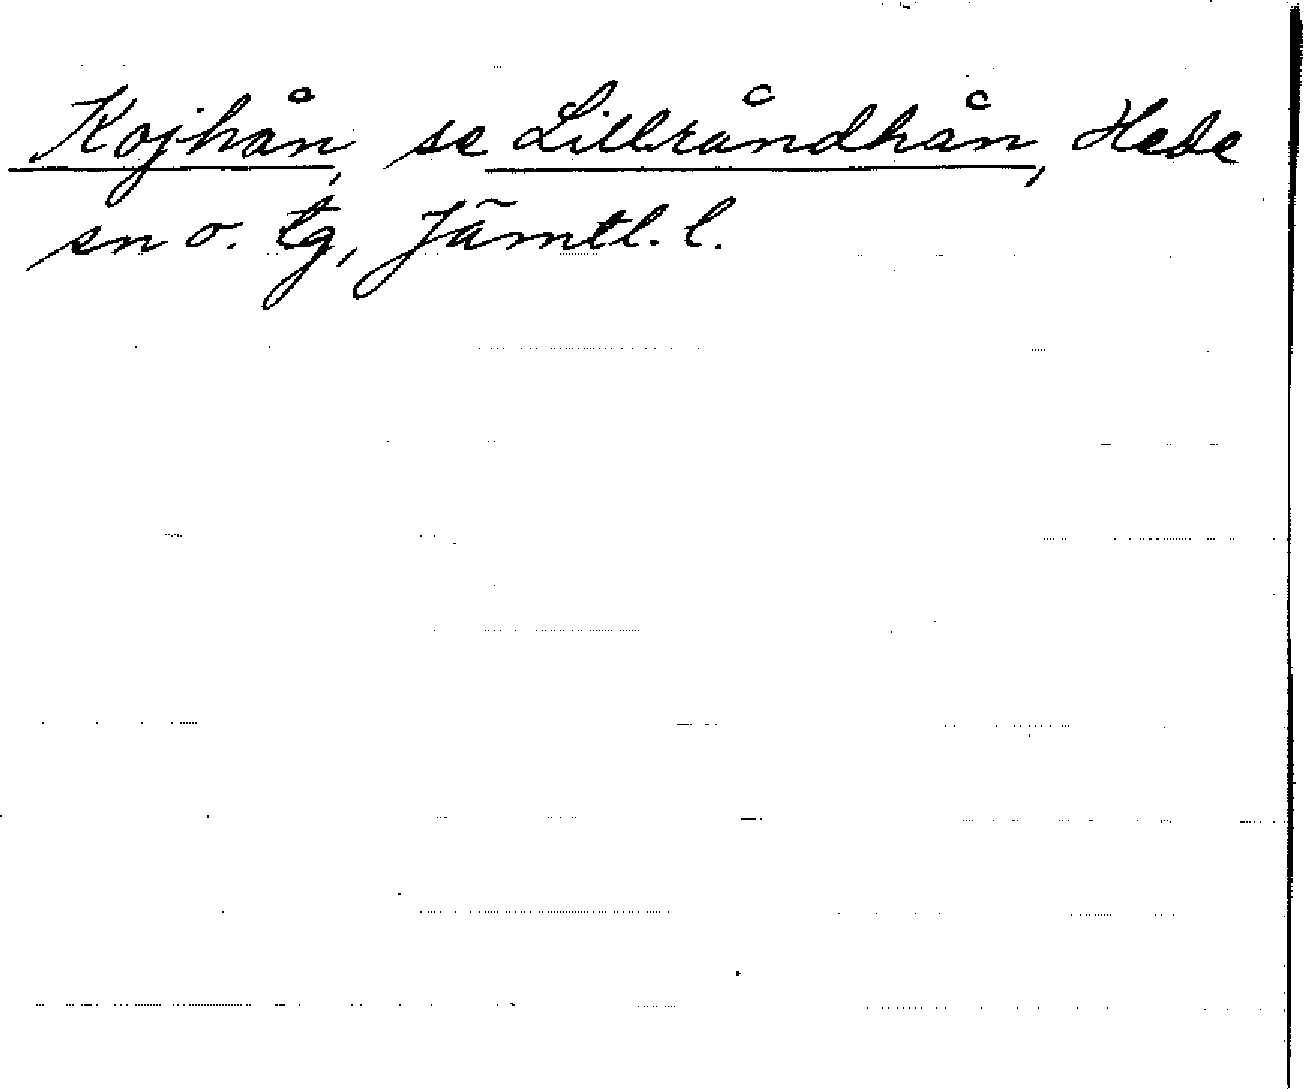 Kojhån, se Lillråndhån, Hede
sn o. tg, Jämtl. l.